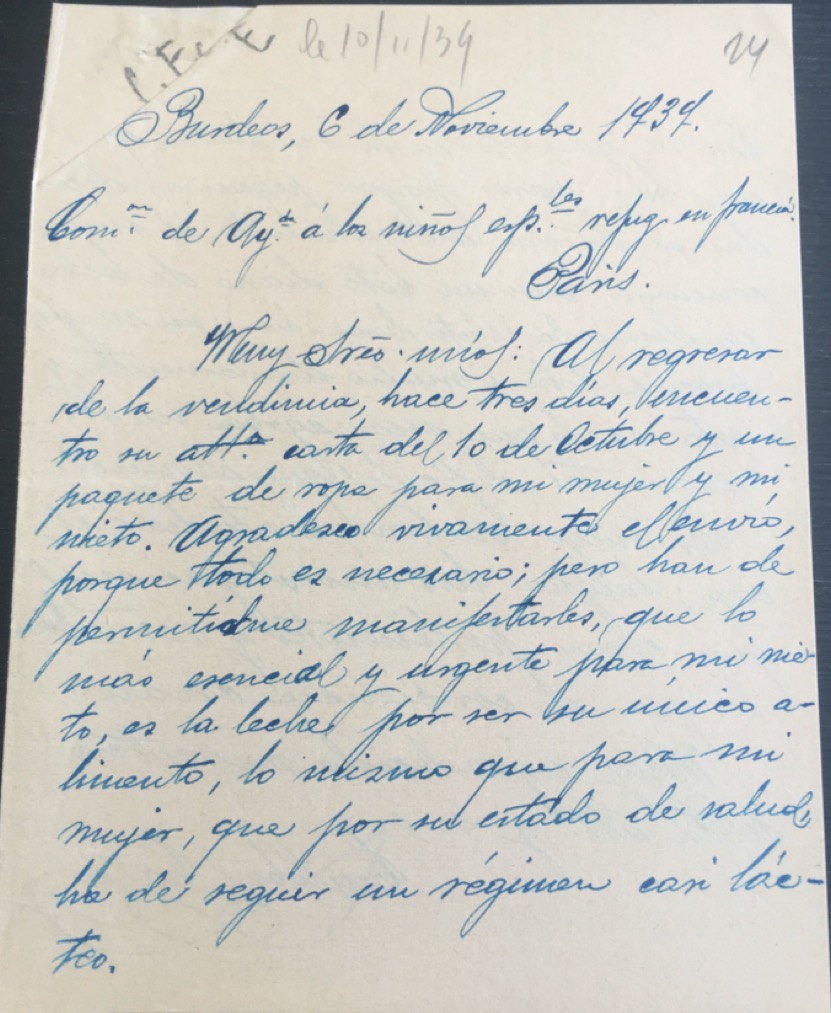 le 10/11/39
24
Burdeos, 6 de Noviembre 1939.
Com.ón de Ay.da á los niños esp.les refug. en francia.
Paris.
Muy Sres. míos: Al regresar
de la vendimia, hace tres días, encuen-
tro su att.a carta del 10 de Octubre y un
paquete de ropa para mi mujer y mi
nieto. Agradesco vivamente el envió,
porque ttodo es necesario; pero han de
permitirme manifestarles, que lo
más esencial y urgente para mi nie-
to, es la leche por ser su único a-
limento, lo mismo que para mi
mujer, que por su estado de salud,
ha de seguir un régimen casi lác-
teo.